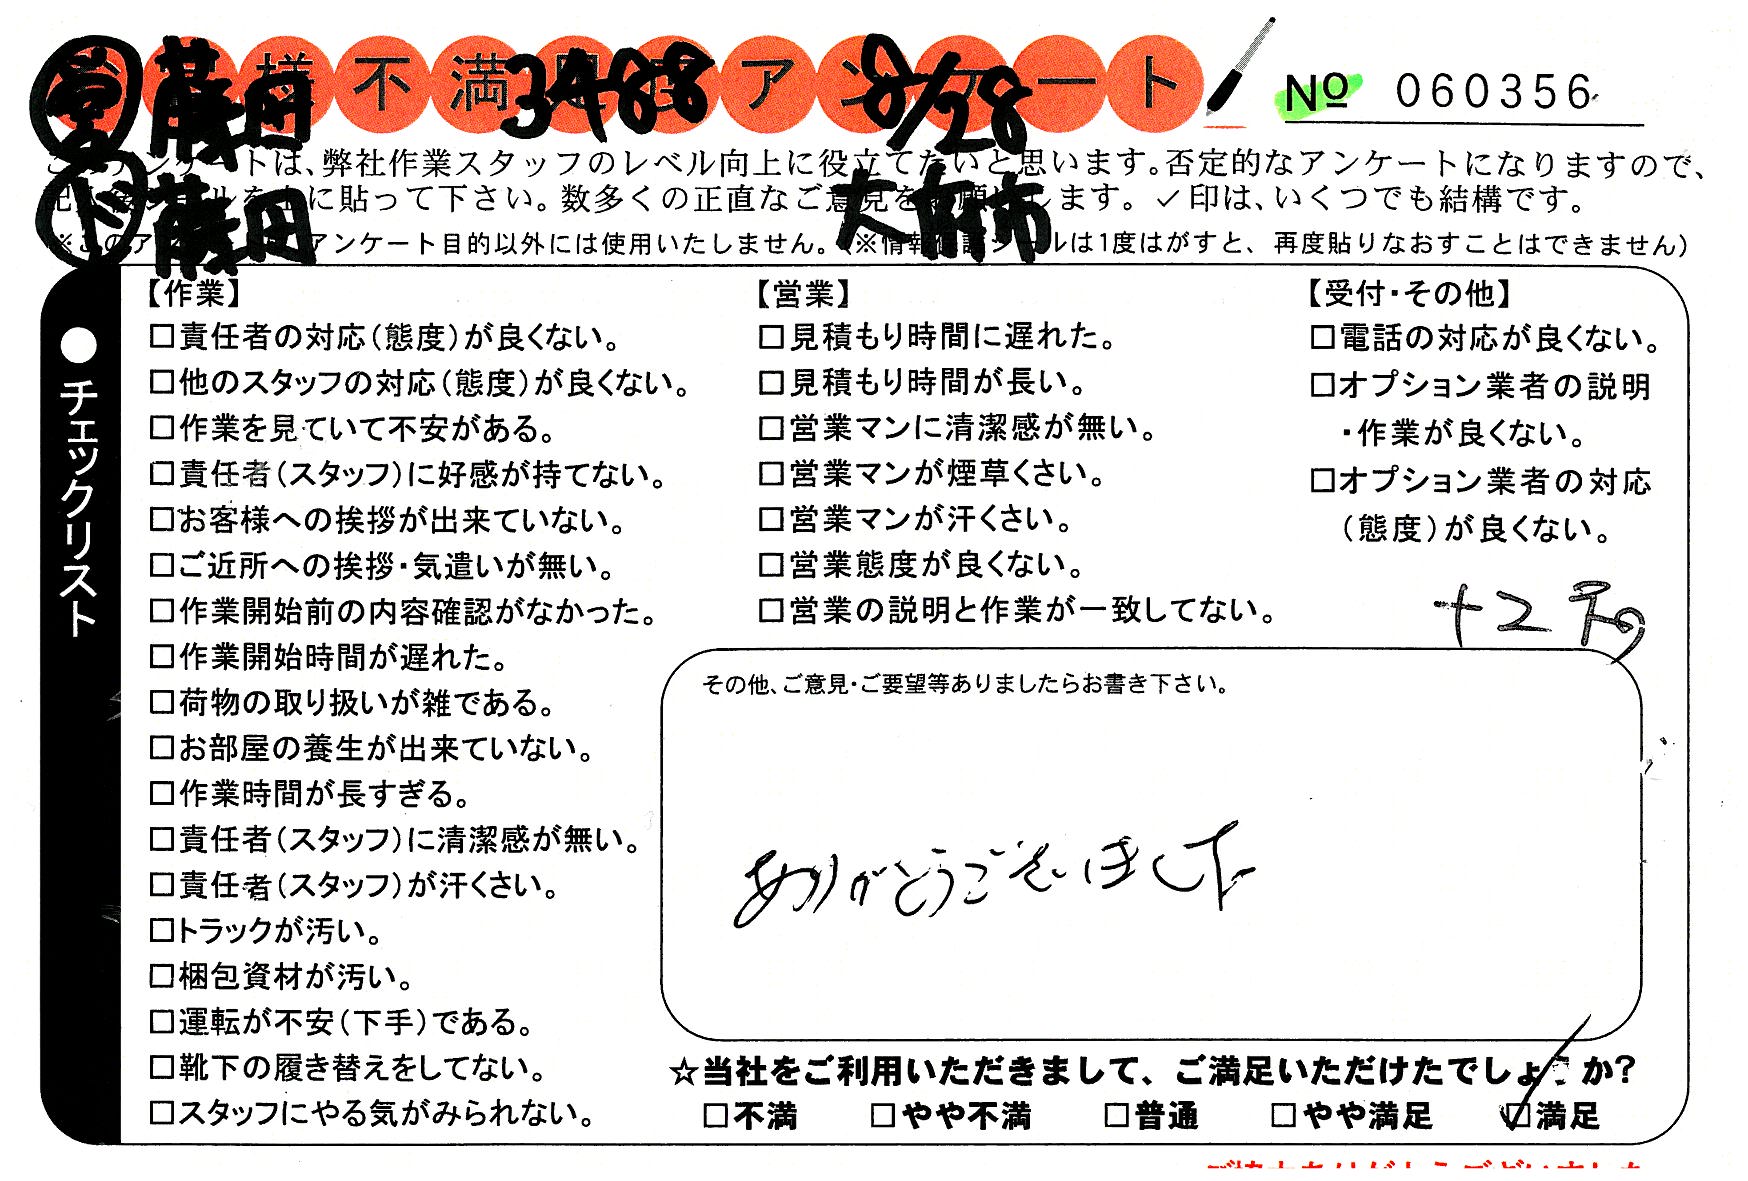 様不満足度アンケート No 060356
営 藤田 3488 8/28
このアンケートは、弊社作業スタッフのレベル向上に役立てたいと思います。否定的なアンケートになりますので、
に貼って下さい。数多くの正直なご意見をお願いします。✓印は、いくつでも結構です。
ド 藤田 大府市
※このア アンケート目的以外には使用いたしません。(※情報保護シールは1度はがすと、再度貼りなおすことはできません)
●チェックリスト
【作業】
□責任者の対応(態度)が良くない。
□他のスタッフの対応(態度)が良くない。
□作業を見ていて不安がある。
□責任者(スタッフ)に好感が持てない。
□お客様への挨拶が出来ていない。
□ご近所への挨拶・気遣いが無い。
□作業開始前の内容確認がなかった。
□作業開始時間が遅れた。
□荷物の取り扱いが雑である。
□お部屋の養生が出来ていない。
□作業時間が長すぎる。
□責任者(スタッフ)に清潔感が無い。
□責任者(スタッフ)が汗くさい。
□トラックが汚い。
□梱包資材が汚い。
□運転が不安(下手)である。
□靴下の履き替えをしてない。
□スタッフにやる気がみられない。
【営業】
□見積もり時間に遅れた。
□見積もり時間が長い。
□営業マンに清潔感が無い。
□営業マンが煙草くさい。
□営業マンが汗くさい。
□営業態度が良くない。
□営業の説明と作業が一致してない。
【受付・その他】
□電話の対応が良くない。
□オプション業者の説明
・作業が良くない。
□オプション業者の対応
(態度)が良くない。
その他、ご意見・ご要望等ありましたらお書き下さい。
ありがとうございました
☆当社をご利用いただきまして、ご満足いただけたでしょうか?
□不満 □やや不満 □普通 □やや満足 ☑満足
ご協力ありがとうございました